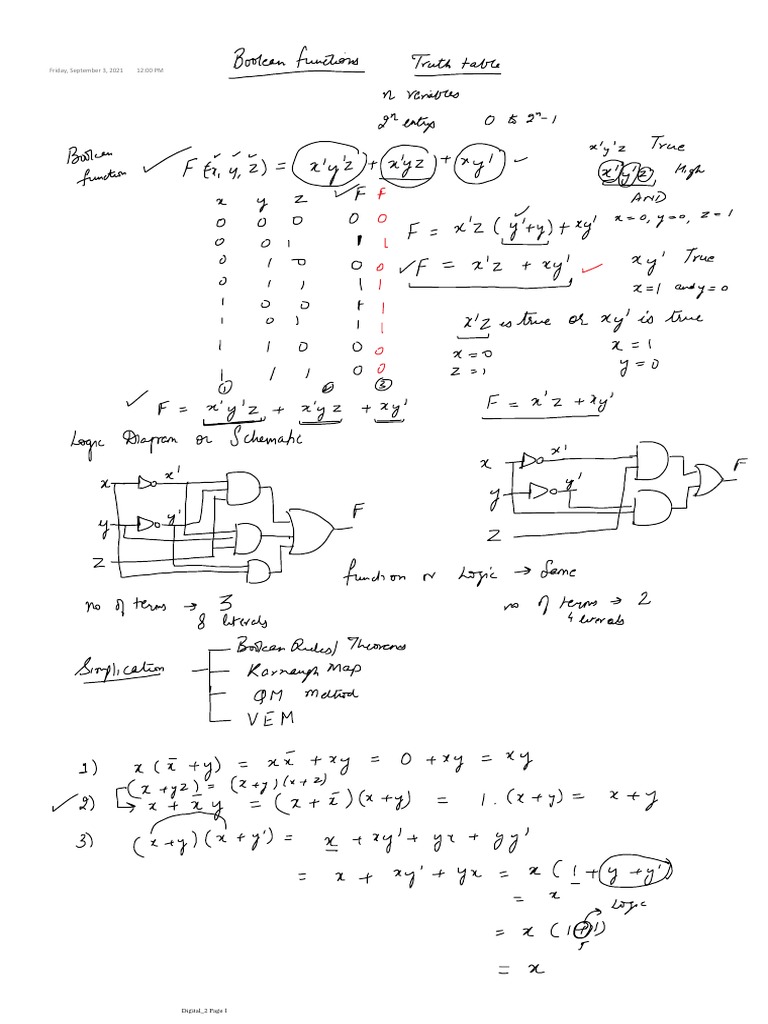 Boolean functions Truth table
Friday, September 3, 2021 12:00 PM
n variables
2ⁿ entrys 0 to 2ⁿ-1
Boolean function ✓ F(x, y, z) = x'y'z + x'yz + xy' ✓
x'y'z True
x'y'z, High
AND
x=0, y=0, z=1
x y z ✓F F
0 0 0 0 0
0 0 1 1 1
0 1 0 0 0
0 1 1 1 1
1 0 0 1 1
1 0 1 1 1
1 1 0 0 0
1 1 1 0 0
① ② ③
F = x'z (y'+y) + xy'
✓F = x'z + xy' ✓
xy' True
x=1 and y=0
x'z is true or xy' is true
x=0 x=1
z=1 y=0
✓ F = x'y'z + x'yz + xy'
F = x'z + xy'
Logic Diagram or Schematic
x x'
y y'
z
F
x x'
y y'
z
F
function or Logic → Same
no of terms → 3
8 literals
no of terms → 2
4 literals
Simplication
Boolean Rules/ Theorems
Karnaugh Map
QM Method
VEM
1) x(x̄+y) = xx̄ + xy = 0 + xy = xy
(x+yz) = (x+y)(x+z)
✓2) x + x̄y = (x+x̄)(x+y) = 1.(x+y) = x+y
3) (x+y)(x+y') = x + xy' + yx + yy'
= x + xy' + yx = x(1+y+y')
= x
Logic
= x(1+1)
= x
Digital_2 Page 1